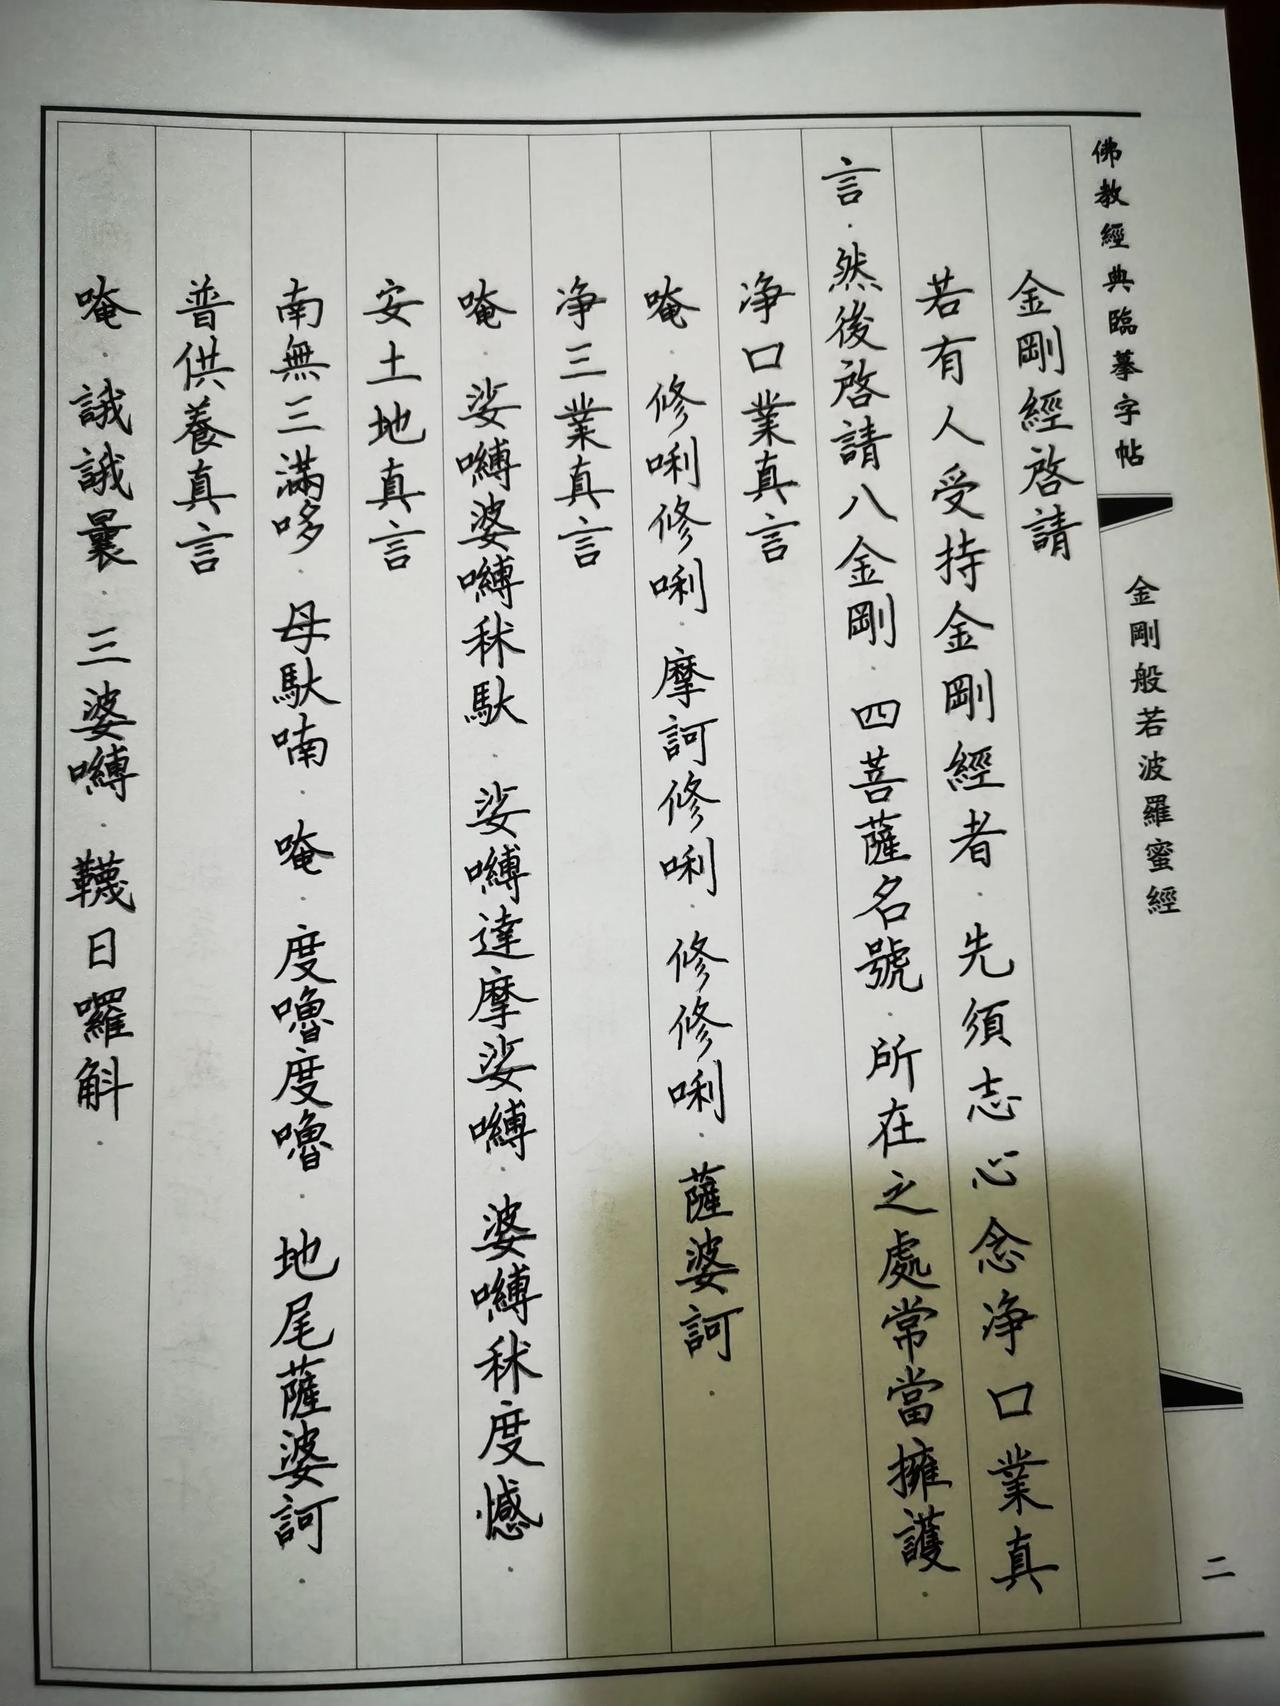 佛教經典臨摹字帖
金剛般若波羅蜜經
二
金剛經啓請
若有人受持金剛經者.先須志心念净口業真
言.然後啓請八金剛.四菩薩名號.所在之處常當擁護.
净口業真言
唵.修唎修唎.摩訶修唎.修修唎.薩婆訶.
净三業真言
唵.娑嚩婆嚩秫馱.娑嚩達摩娑嚩.婆嚩秫度憾.
安土地真言
南無三滿哆.母馱喃.唵.度嚕度嚕.地尾薩婆訶.
普供養真言
唵.誐誐曩.三婆嚩.韈日囉斛.